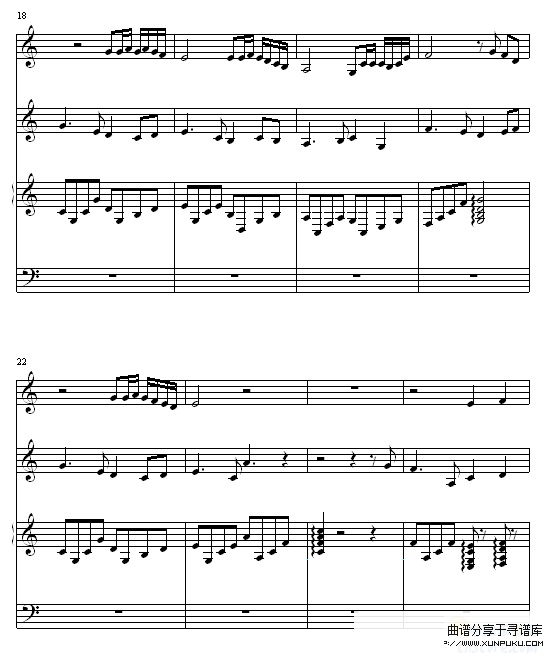 18
22
曲谱分享于寻谱库
>WWW.XUNPUKU.COM